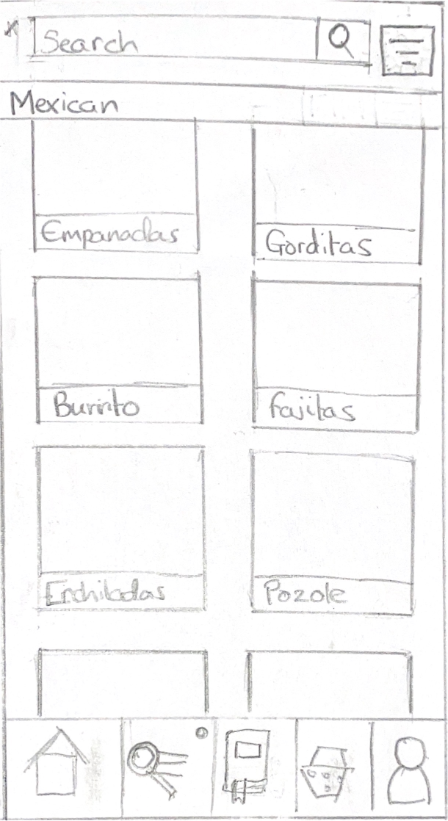 Search
Mexican
Empanadas
Gorditas
Burrito
Fajitas
Enchiladas
Pozole